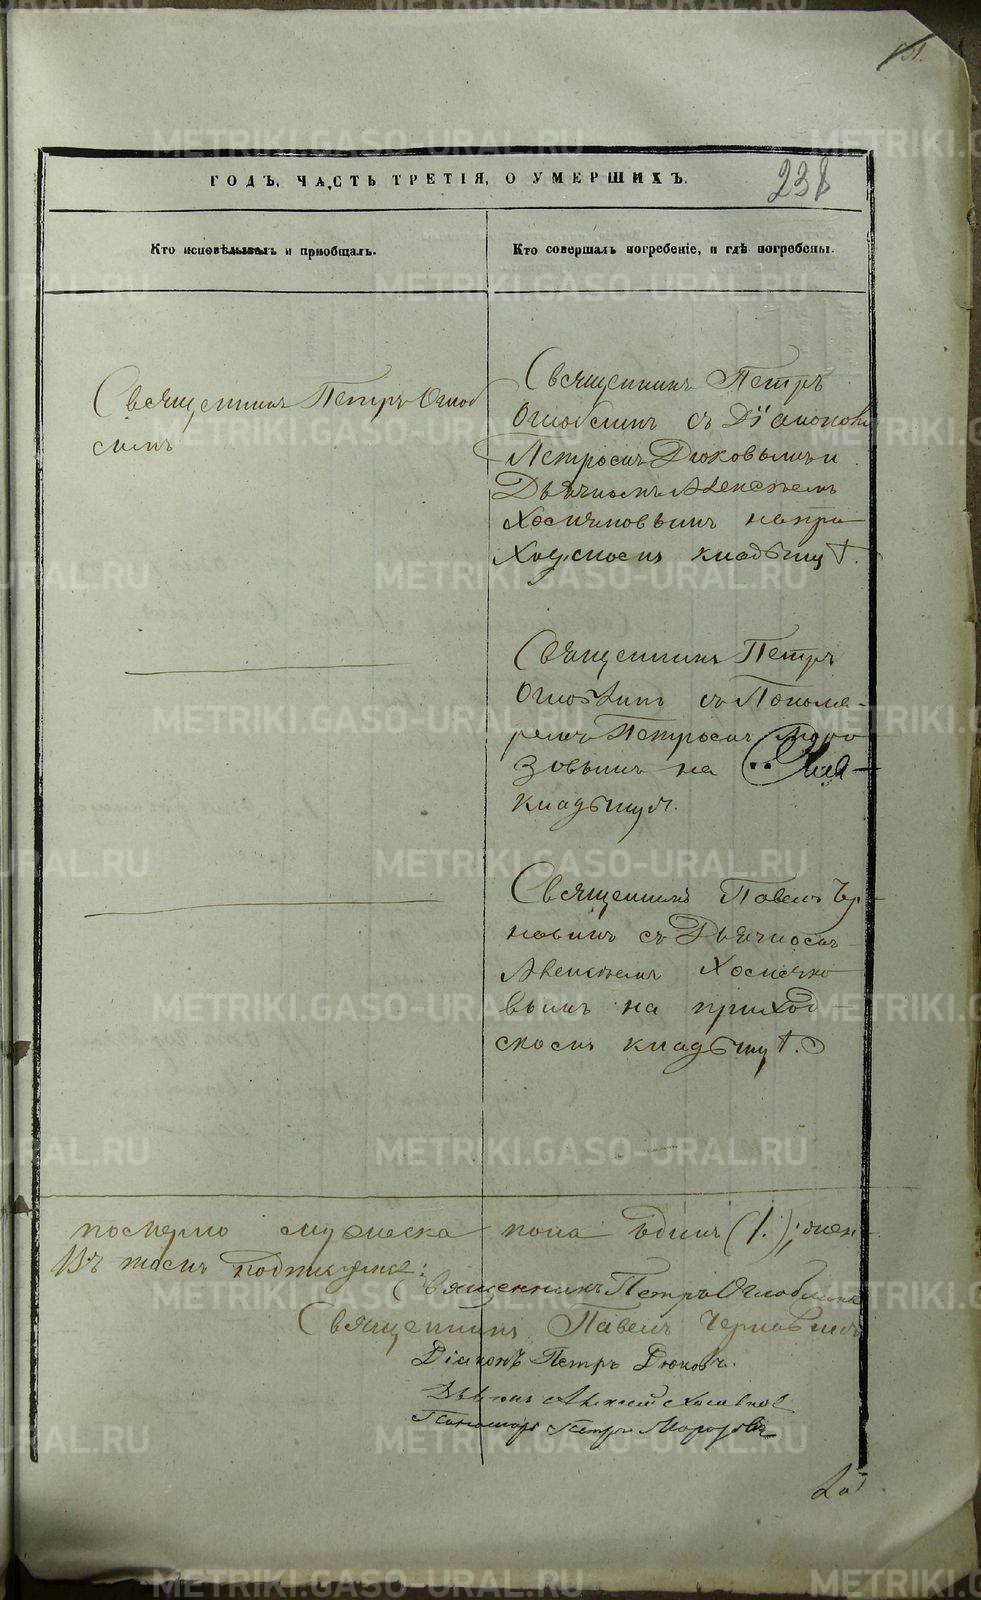 231.
238
ГОДЪ, ЧАСТЬ ТРЕТІЯ, О УМЕРШИХЪ.
Кто исповѣдывалъ и пріобщалъ.
Кто совершалъ погребеніе, и гдѣ погребены.
Священникъ Петръ Оглоб
линъ
Священникъ Петръ
Оглоблинъ съ Діакономъ
Петромъ Дюковымъ и
Дьячкомъ Алексѣемъ
Хомяковымъ на при
ходскомъ кладбищѣ.
Священникъ Петръ
Оглоблинъ съ Понома-
ремъ Петромъ Моро
зовымъ на
кладбищѣ.
Священникъ Павелъ Чер
навинъ съ Дьячкомъ
Алексѣемъ Хомяко
вымъ на приход
скомъ кладбищѣ.
померло мужеска пола одинъ (1.); жен
Въ томъ подписуемся:
Священникъ Петръ Оглоблинъ
Священникъ Павелъ Чернавинъ
Діаконъ Петръ Дюковъ.
Дьячекъ Алексѣй Хомяковъ
Пономарь Петръ Морозовъ
METRIKI.GASO-URAL.RU